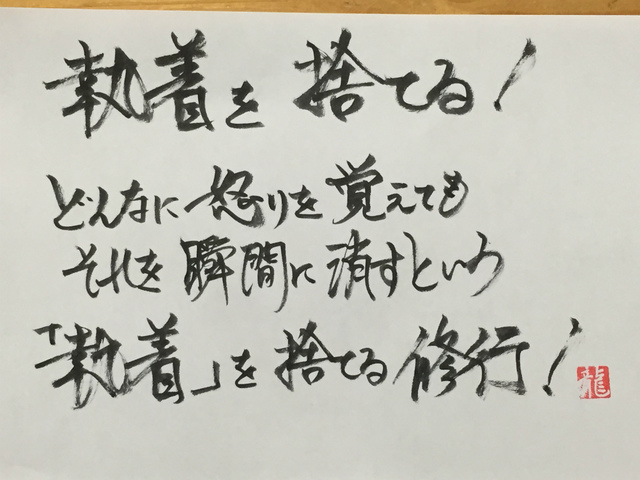 執着を捨てる!
どんなに怒りを覚えても
それを瞬間に消すという
「執着」を捨てる修行!
龍